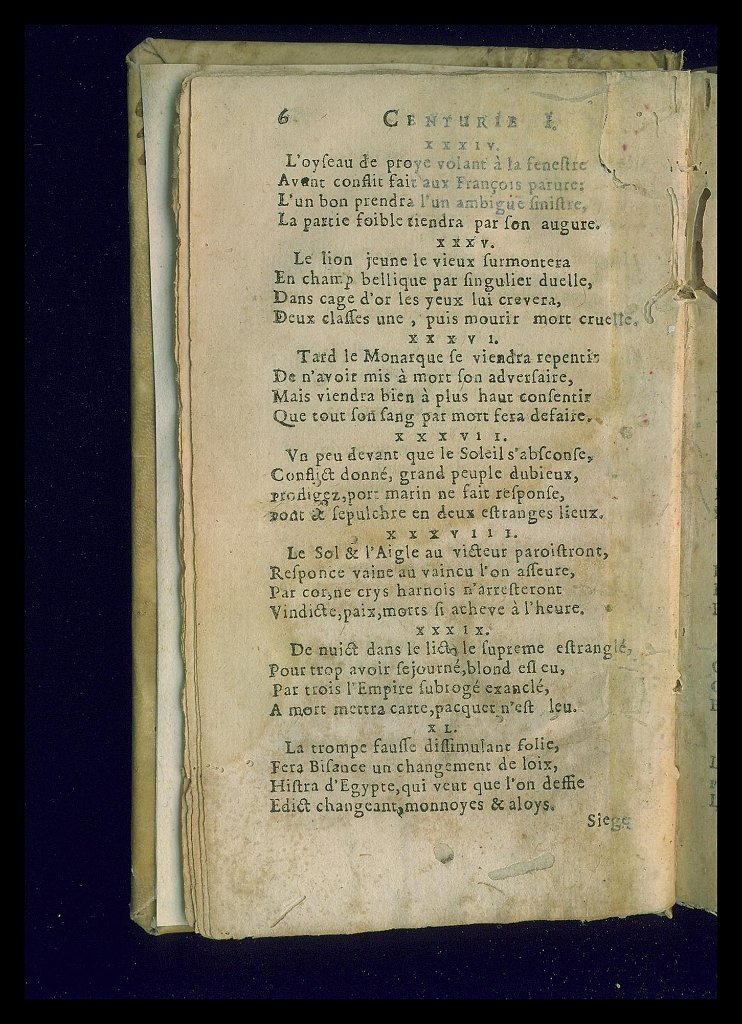 6 CENTURIE I.
XXXIV.
L'oyſeau de proye volant à la feneſtre
Avant conflit fait aux François parure:
L'un bon prendra l'un ambigue ſiniſtre,
La partie foible tiendra par ſon augure.
XXXV.
Le lion jeune le vieux ſurmontera
En champ bellique par ſingulier duelle,
Dans cage d'or les yeux lui crevera,
Deux claſſes une, puis mourir mort cruelle.
XXXVI.
Tard le Monarque ſe viendra repentir
De n'avoir mis à mort ſon adverſaire,
Mais viendra bien à plus haut conſentir
Que tout ſon ſang par mort ſera defaire.
XXXVII.
Vn peu devant que le Soleil s'abſconſe,
Conflict donné, grand peuple dubieux,
profligez, port marin ne fait reſponſe,
pont & ſepulchre en deux eſtranges lieux.
XXXVIII.
Le Sol & l'Aigle au victeur paroiſtront,
Reſponce vaine au vaincu l'on aſſeure,
Par cor, ne crys harnois n'arreſteront
Vindicte, paix, morts ſi acheve à l'heure.
XXXIX.
De nuict dans le lict le ſupreme eſtranglé,
Pour trop avoir ſejourné, blond eſleu,
Par trois l'Empire ſubrogé exanclé,
A mort mettra carte, pacquet n'eſt leu.
XL.
La trompe fauſſe diſſimulant folie,
Fera Biſance un changement de loix,
Hiſtra d'Egypte, qui veut que l'on deffie
Edict changeant, monnoyes & aloys.
Siege